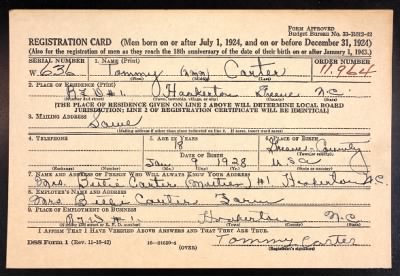 FORM APPROVED
Budget Bureau No. 33-R012-42
REGISTRATION CARD (Men born on or after July 1, 1924, and on or before December 31, 1924)
(Also for the registration of men as they reach the 18th anniversary of the date of their birth on or after January 1, 1943.)
SERIAL NUMBER 1. NAME (Print) ORDER NUMBER
W. 636 Tommy Carter 11,964
(First) (Middle) (Last)
2. PLACE OF RESIDENCE (Print)
#1. Hookerton Greene N.C.
(THE PLACE OF RESIDENCE GIVEN ON LINE 2 ABOVE WILL DETERMINE LOCAL BOARD
JURISDICTION; LINE 2 OF REGISTRATION CERTIFICATE WILL BE IDENTICAL)
3. MAILING ADDRESS
Same
(Mailing address if other than place indicated on line 2. If same, insert word same)
4. TELEPHONE 5. AGE IN YEARS 6. PLACE OF BIRTH
18 Greene County
DATE OF BIRTH (Town or county)
Jan 9 1928 U.S.A.
(Exchange) (Number) (Mo.) (Day) (Yr.) (State or country)
7. NAME AND ADDRESS OF PERSON WHO WILL ALWAYS KNOW YOUR ADDRESS
Mrs. Carter (Mother) #1 Hookerton N.C.
8. EMPLOYER'S NAME AND ADDRESS
Mrs Carter Farm
9. PLACE OF EMPLOYMENT OR BUSINESS
#1. Hookerton N.C.
(Number and street or R. F. D. number) (Town) (County) (State)
I AFFIRM THAT I HAVE VERIFIED ABOVE ANSWERS AND THAT THEY ARE TRUE.
DSS Form 1 (Rev. 11-16-42) (OVER) Tommy Carter
(Registrant's signature)